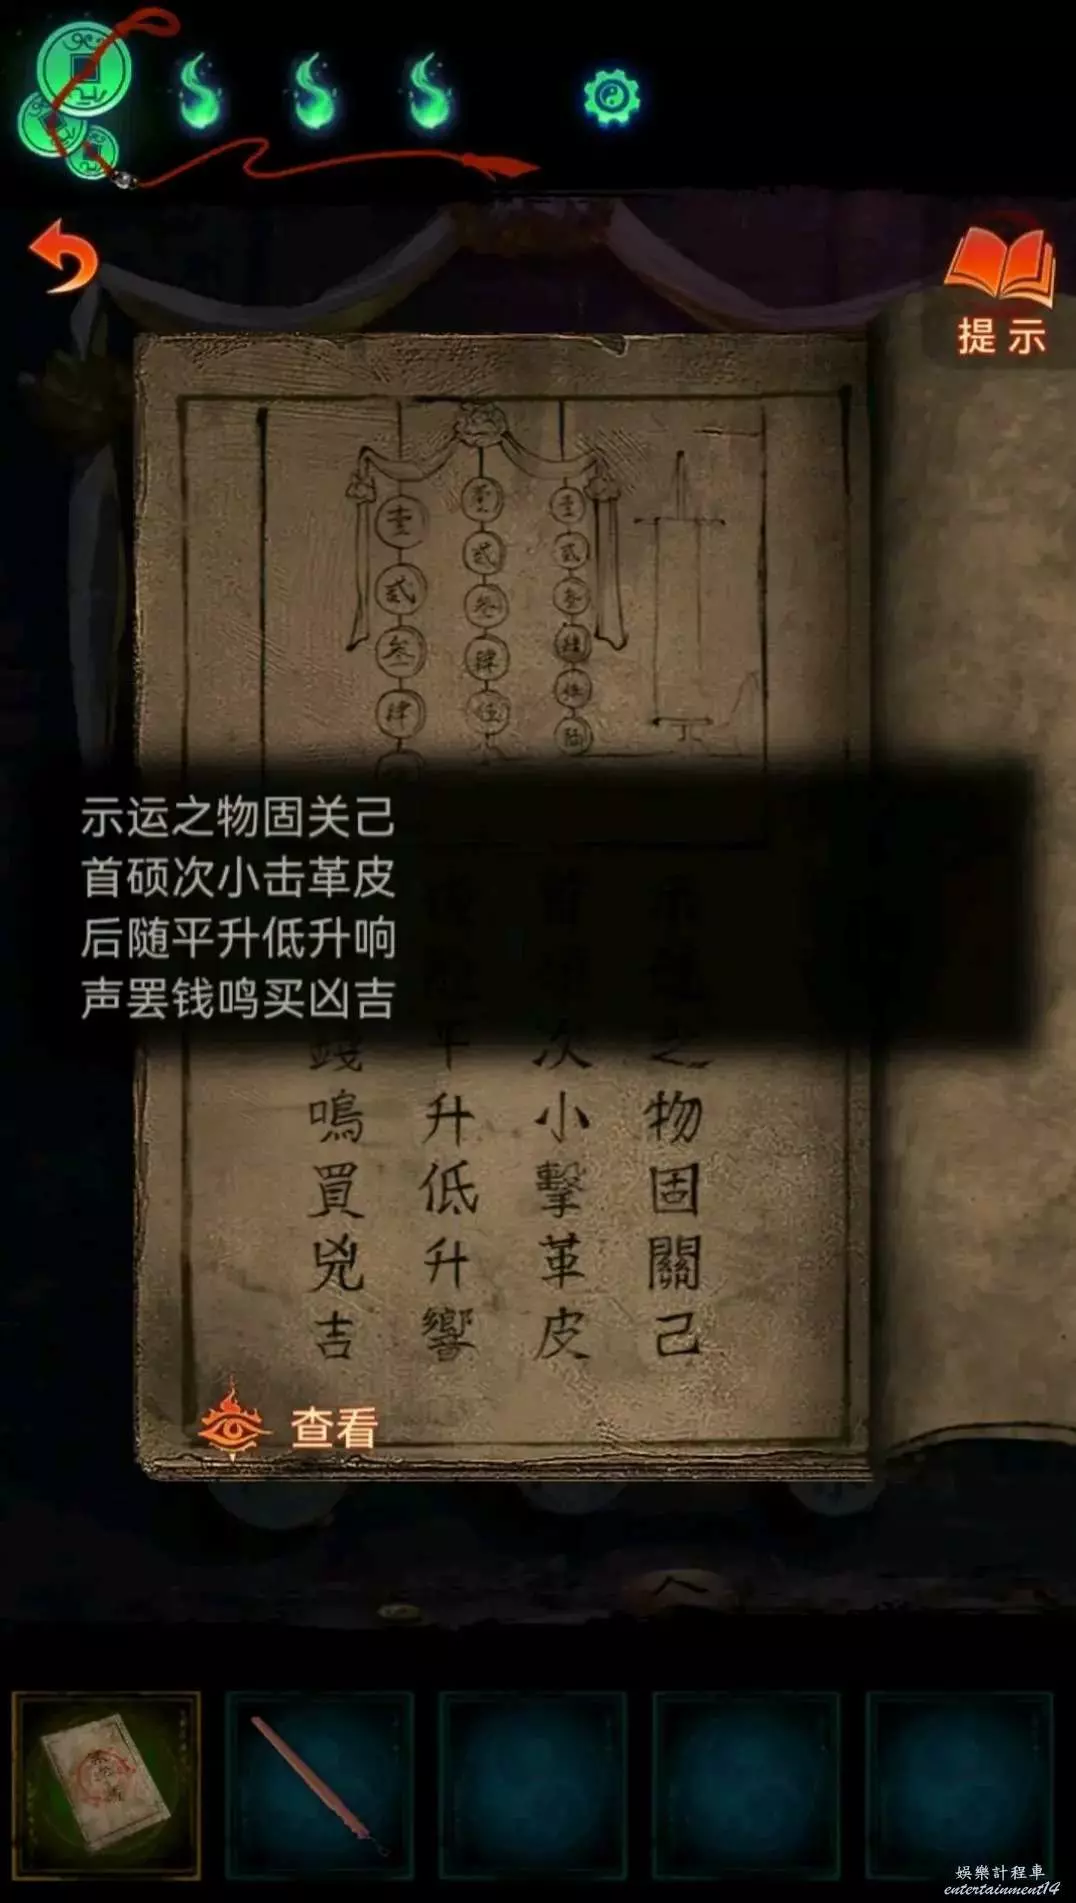 提示
壹 壹 壹
贰 贰 贰
叁 叁 叁
肆 肆 肆
伍 伍
陆
示运之物固关己
首硕次小击革皮
后随平升低升响
声罢钱鸣买凶吉
之物固關己
次小擊革皮
平升低升響
錢鳴買兇吉
查看
娛樂計程車
entertainment14